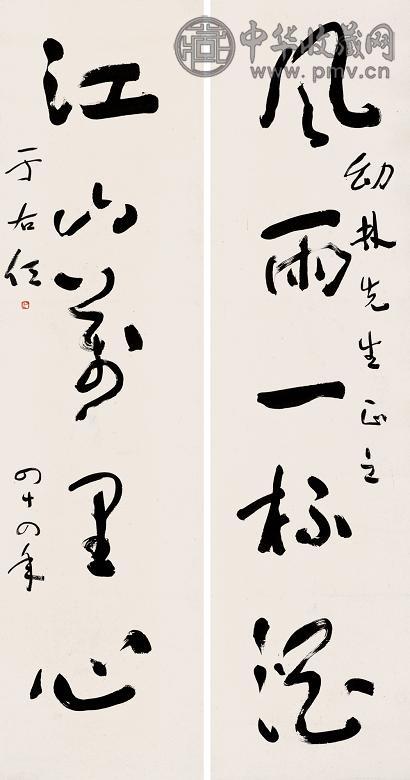 中华收藏网
www.pmv.cn
風雨一杯酒
幼林先生正之
江山萬里心
四十四年
于右任